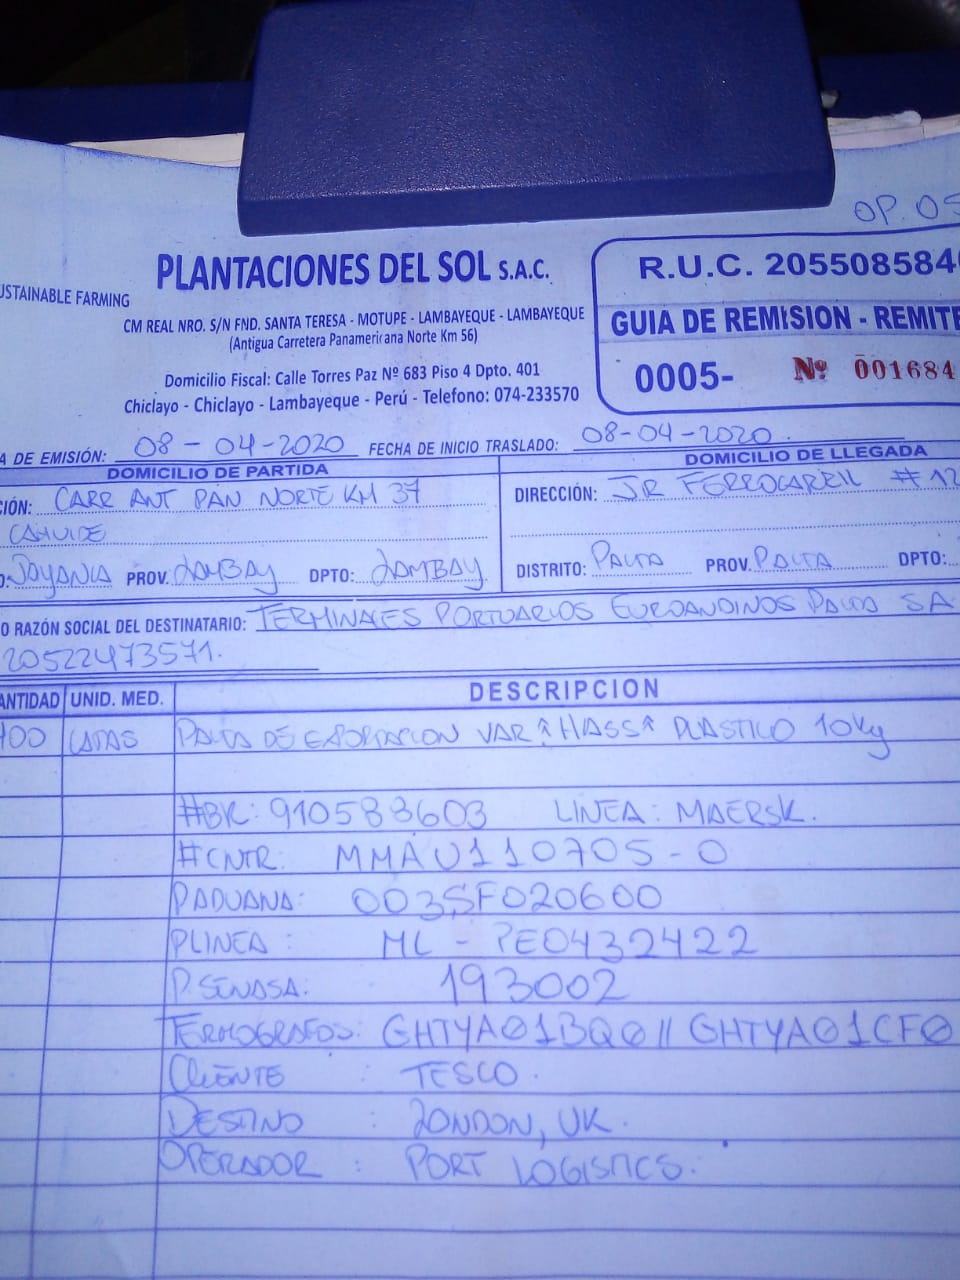 OP. 05
PLANTACIONES DEL SOL S.A.C.
USTAINABLE FARMING
CM REAL NRO. S/N FND. SANTA TERESA - MOTUPE - LAMBAYEQUE - LAMBAYEQUE
(Antigua Carretera Panamericana Norte Km 56)
Domicilio Fiscal: Calle Torres Paz Nº 683 Piso 4 Dpto. 401
Chiclayo - Chiclayo - Lambayeque - Perú - Telefono: 074-233570
R.U.C. 2055085840
GUIA DE REMISION - REMITE
0005- Nº 001684
A DE EMISIÓN: 08-04-2020 FECHA DE INICIO TRASLADO: 08-04-2020.
DOMICILIO DE PARTIDA
CIÓN: CARR ANT PAN NORTE KM 37
CAHUIDE
O: JAYANCA PROV. LAMBAY DPTO: LAMBAY
DOMICILIO DE LLEGADA
DIRECCIÓN: JR FERROCARRIL # 12
DISTRITO: PAITA PROV. PAITA DPTO:
O RAZÓN SOCIAL DEL DESTINATARIO: TERMINALES PORTUARIOS EUROANDINOS PAITA SA
20522473571.
ANTIDAD UNID. MED. DESCRIPCION
400 CAJAS PALTA DE EXPORTACION VAR "HASS" PLASTICO 10Kg
#BK: 910583603 LINEA: MAERSK.
#CNTR: MMAU110705-0
PADUANA: 003SF020600
PLINEA: ML-PE0432422
P. SENASA: 193002
TERMOGRAFOS: GHTYA01BQ0 // GHTYA01CF0
CLIENTE : TESCO.
DESTINO : LONDON, UK.
OPERADOR : PORT LOGISTICS.